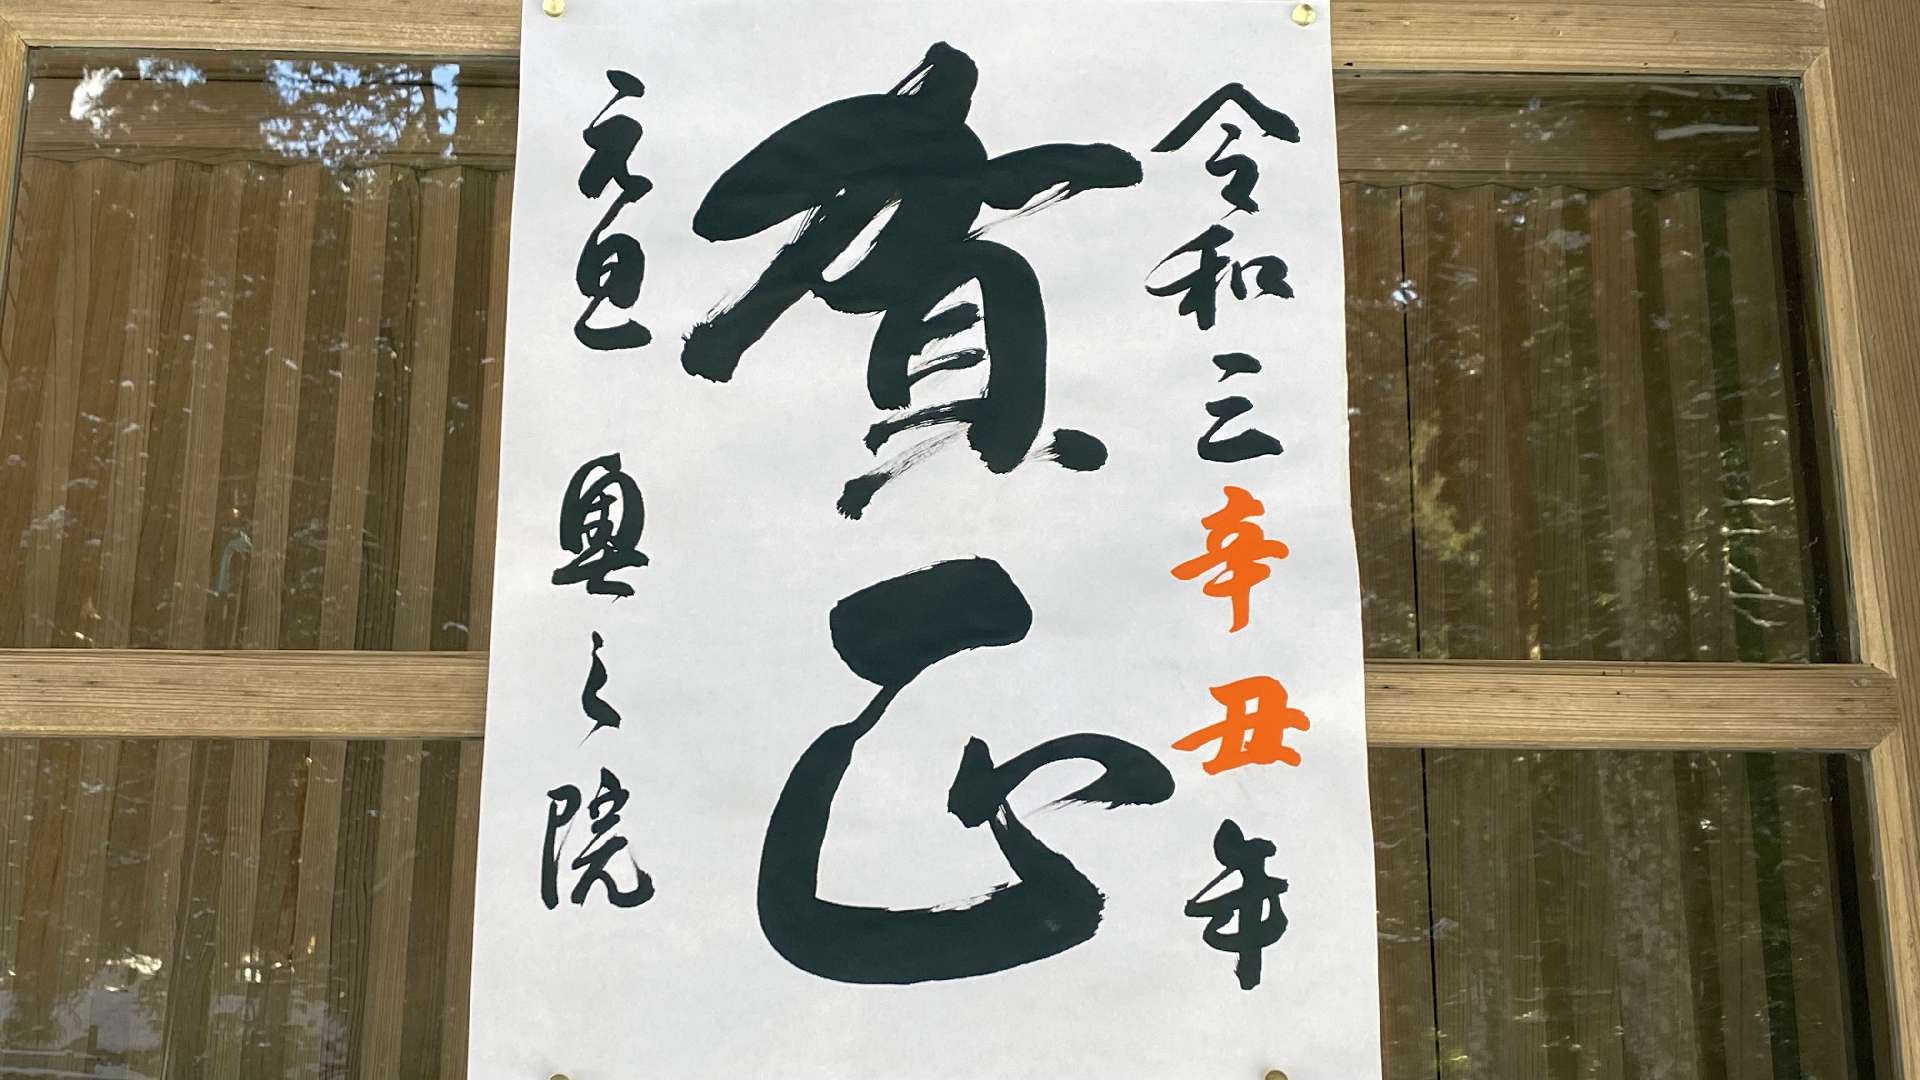 令和三辛丑年
賀正
元旦 奥之院